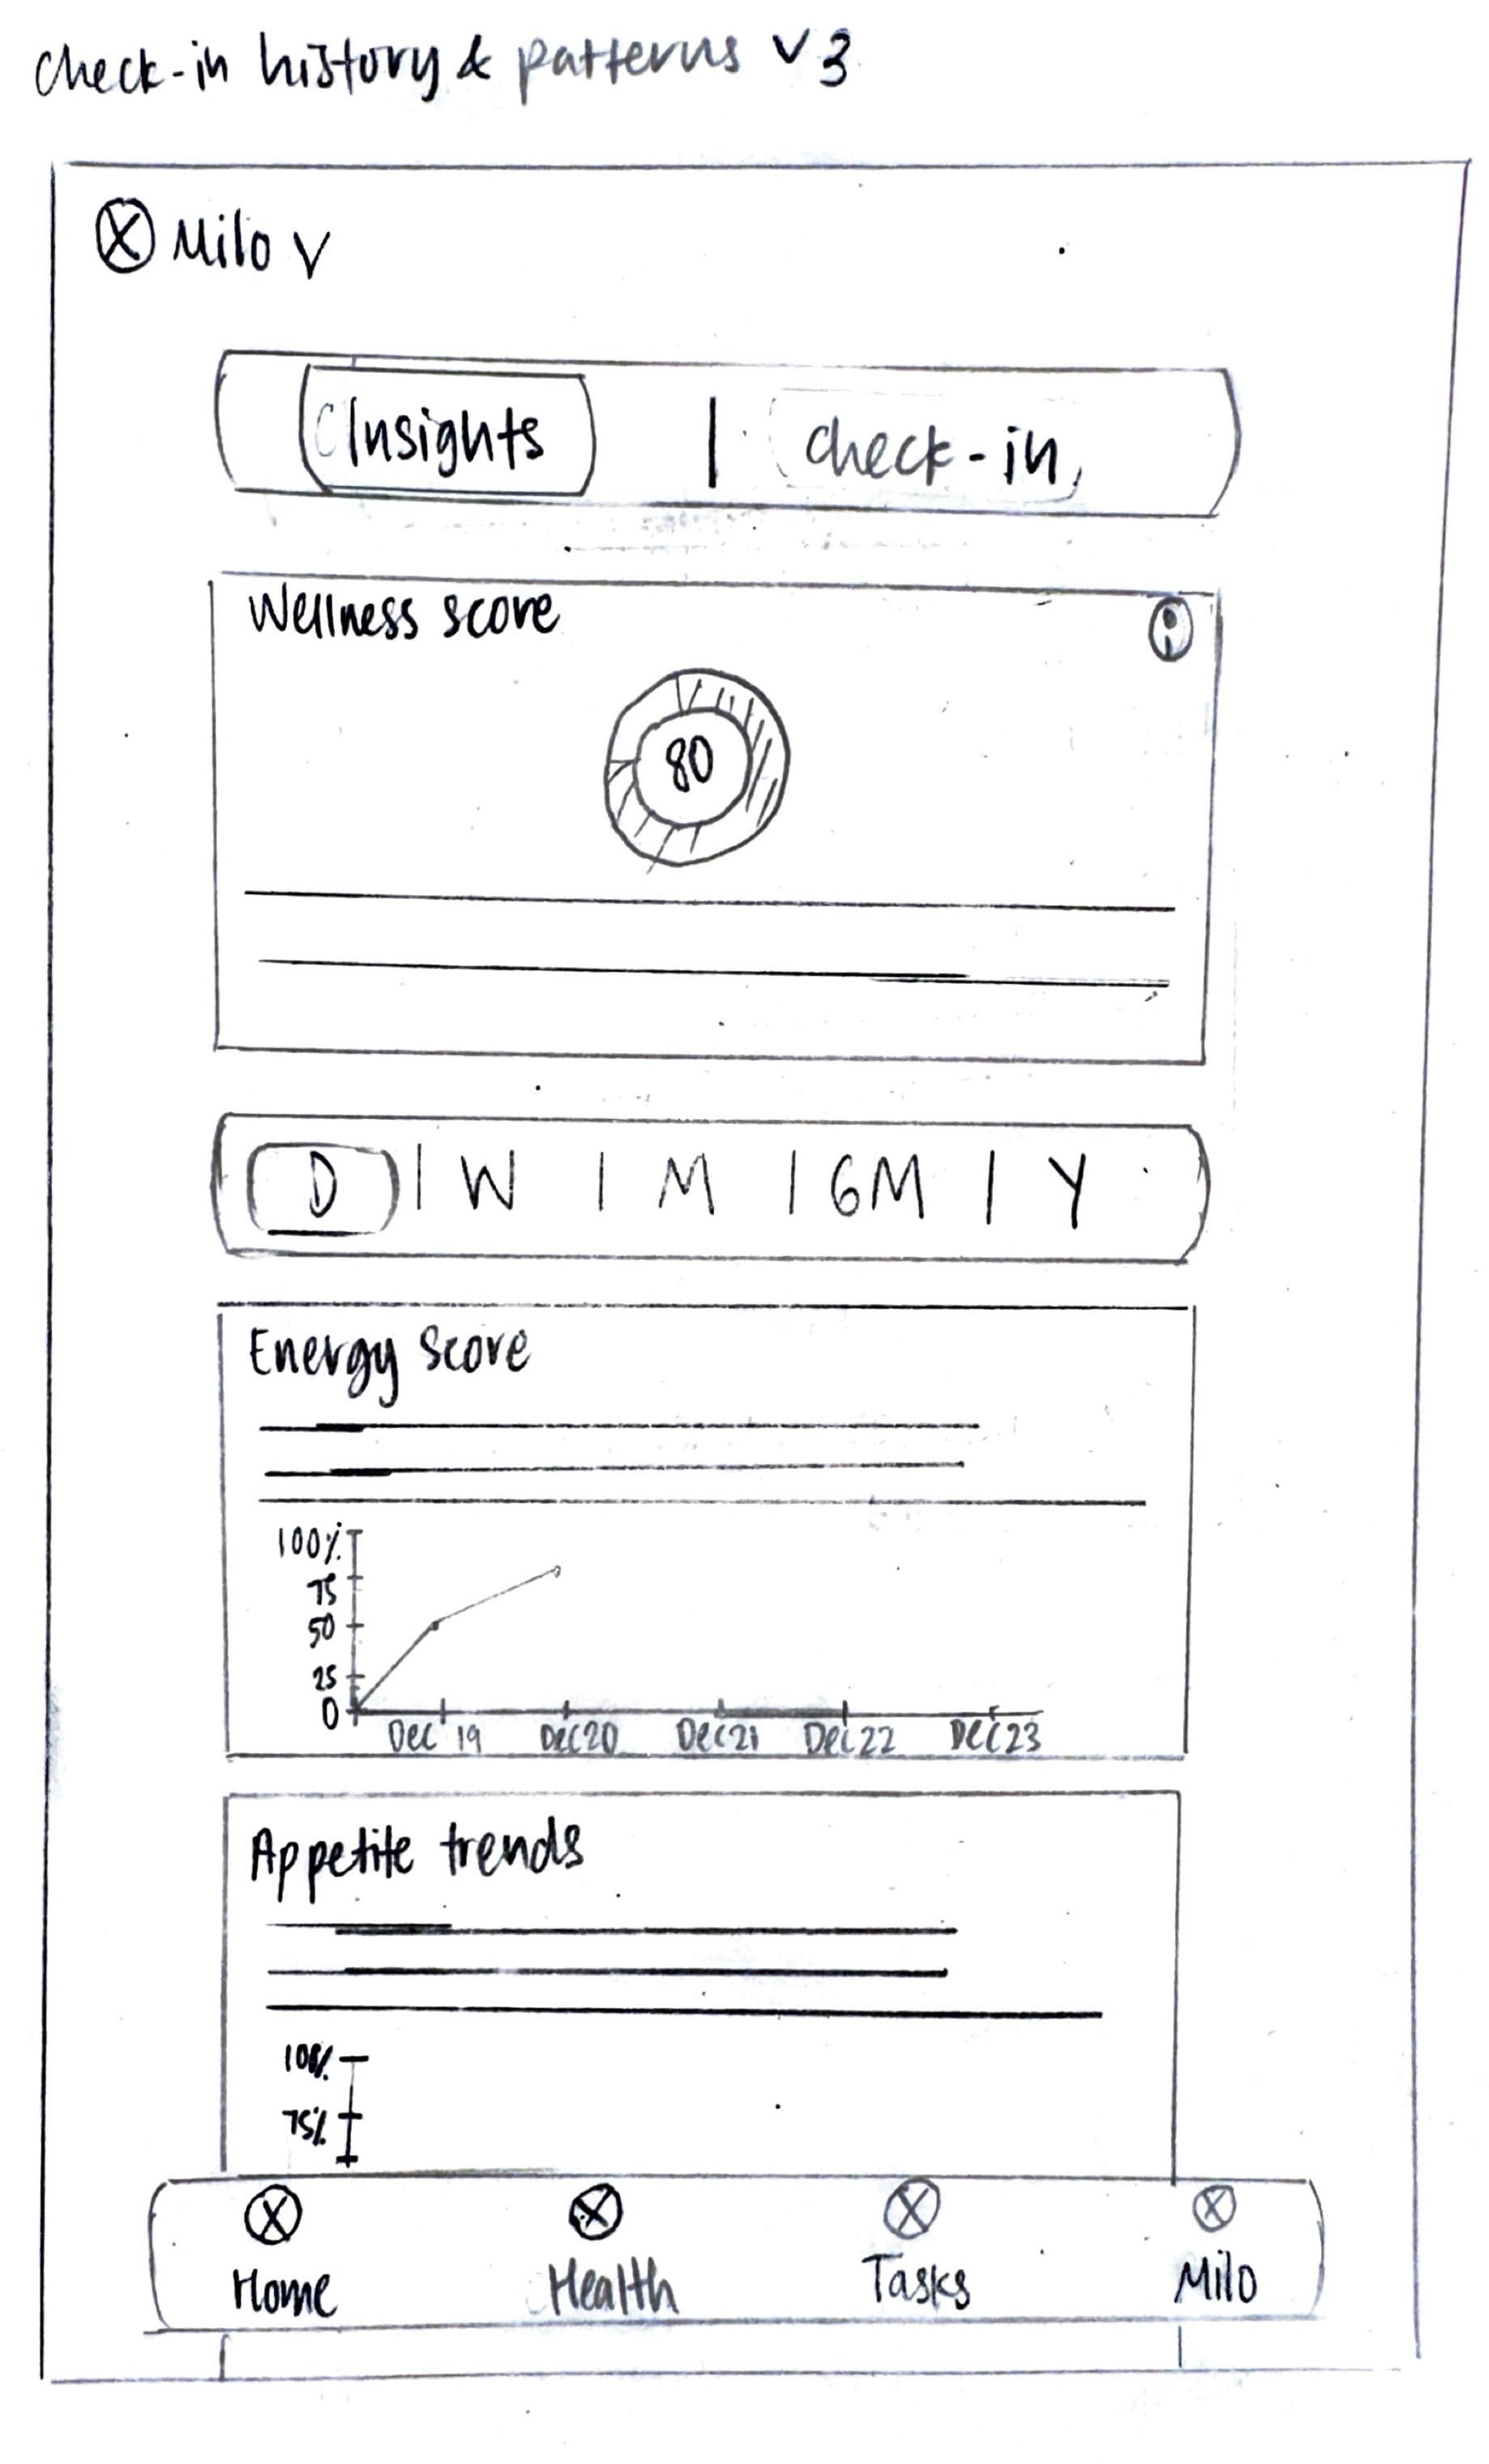 check-in history & patterns v3
Milo
Insights | check-in
Wellness score
i
80
D | W | M | 6M | Y
Energy score
100%
75
50
25
0
Dec 19 Dec 20 Dec 21 Dec 22 Dec 23
Appetite trends
100%
75%
Home Health Tasks Milo